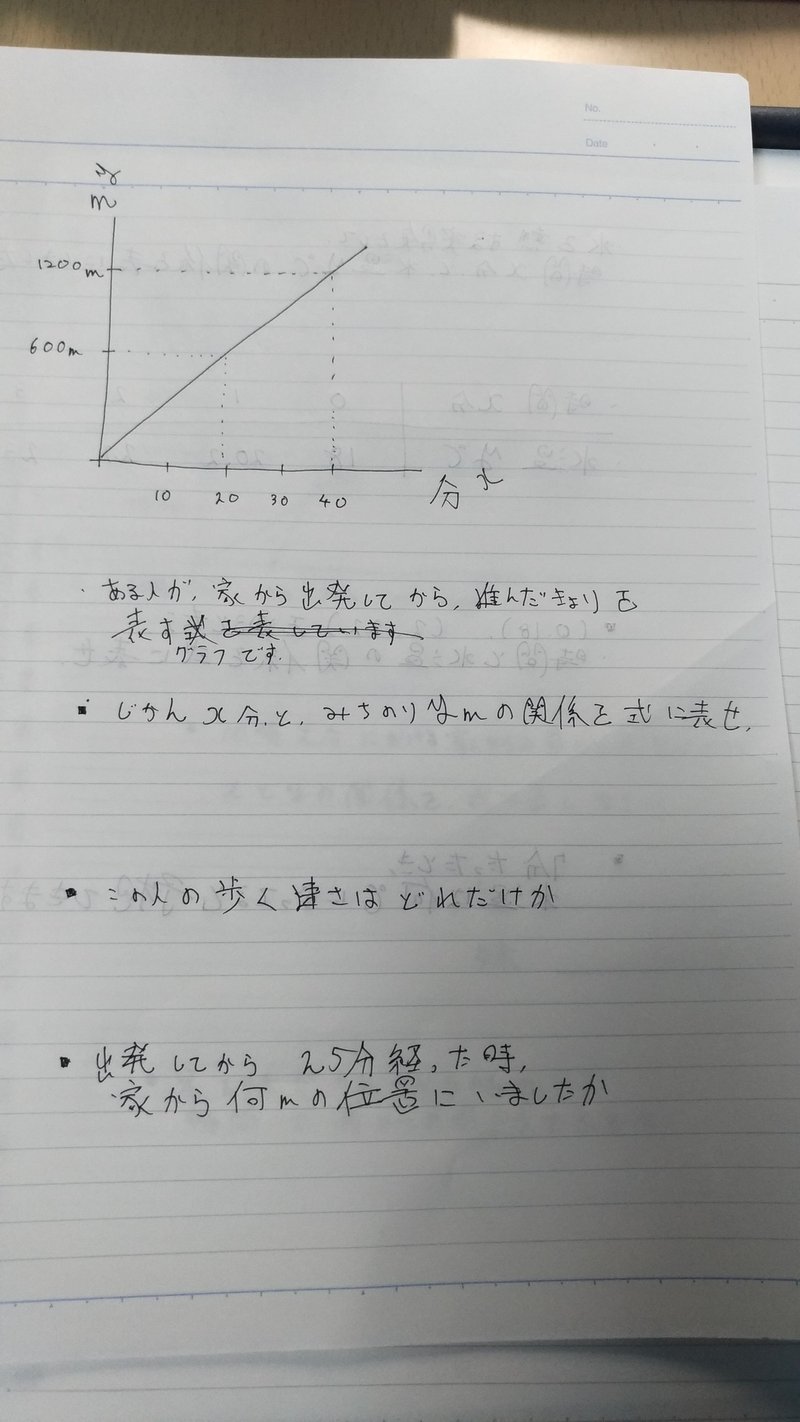 No.
Date
y
m
1200m
600m
10 20 30 40
分 x
・ある人が、家から出発してから、進んだきょりを
表す式を表しています
グラフです.
・じかん x分.と、みちのり ymの関係を式に表せ.
・この人の歩く速さは どれだけか
・出発してから 25分経った時,
家から何mの位置にいましたか